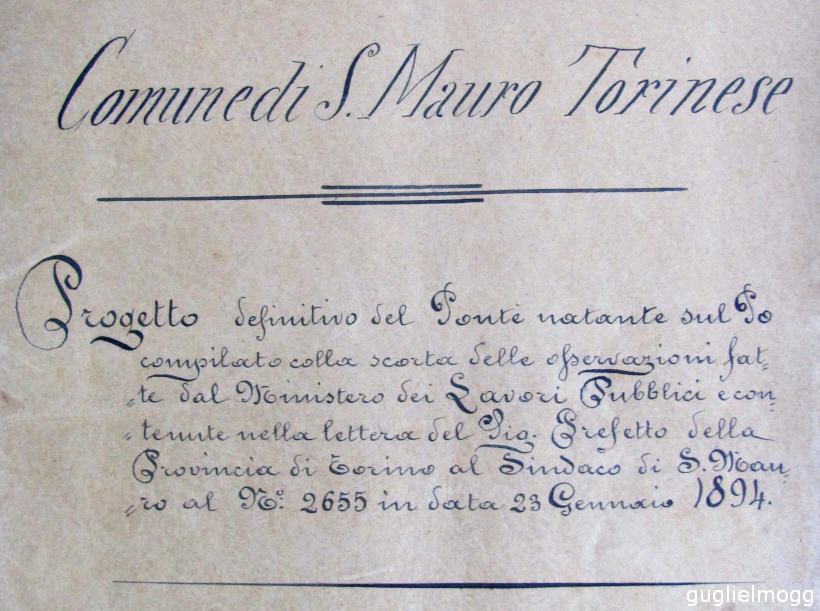 Comune di S. Mauro Torinese
Progetto definitivo del Ponte natante sul Po
compilato colla scorta delle osservazioni fat-
-te dal Ministero dei Lavori Pubblici e con-
-tenute nella lettera del Sig. Prefetto della
Provincia di Torino al Sindaco di S. Mau-
-ro al Nº: 2655 in data 23 Gennaio 1894.
guglielmogg